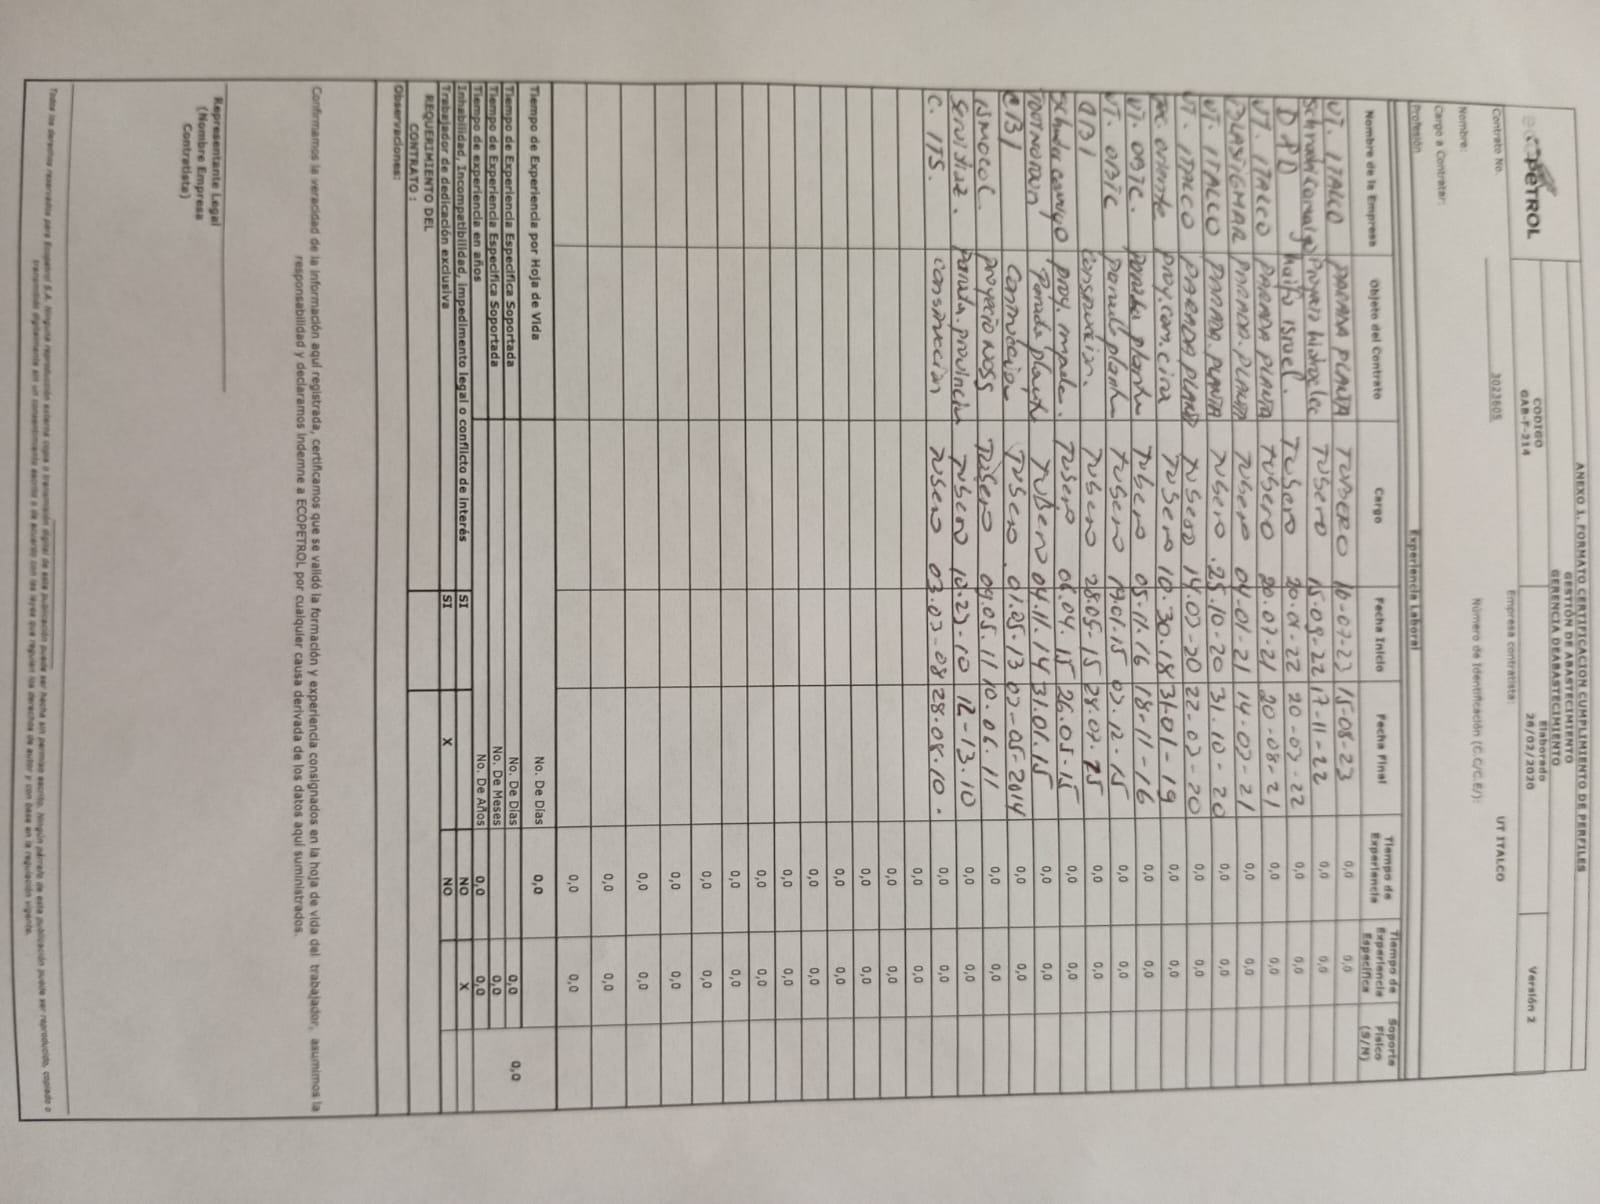 ecopETROL
ANEXO 1. FORMATO CERTIFICACION CUMPLIMIENTO DE PERFILES
GESTIÓN DE ABASTECIMIENTO
GERENCIA DEABASTECIMIENTO
CODIGO GAB-F-214 Elaborado 26/02/2020 Versión 2
Contrato No. 3023605 Empresa contratista: UT ITALCO
Nombre: Número de Identificación (C.C/C.E/):
Cargo a Contratar:
Profesión
Experiencia Laboral
Nombre de la Empresa Objeto del Contrato Cargo Fecha Inicio Fecha Final Tiempo de Experiencia Tiempo de Experiencia Específica Soporte Físico (S/N)
UT. ITALCO PARADA PLANTA TUBERO 16-07-23 15-08-23 0,0 0,0
Schrader Camargo Proyecto hidroelec TUBERO 15-09-22 17-11-22 0,0 0,0
DAPD haifa ISrael. TUBERO 20-01-22 20-07-22 0,0 0,0
UT. ITALCO PARADA PLANTA TUBERO 20.07-21 20-08-21 0,0 0,0
PARADA. PLANTA TUBERO 04-01-21 14-07-21 0,0 0,0
UT. ITALCO PARADA. PLANTA TUBERO . 25.10-20 31.10-20 0,0 0,0
UT. ITALCO PARADA PLANT TUBERO 14.07-20 22-07-20 0,0 0,0
oriente proy. con. cira TUBERO 10.30.18 31-01-19 0,0 0,0
UT. OBTC. parada planta TUBERO 05-11.16 18-11-16 0,0 0,0
UT. OBTC parada planta TUBERO 19.01.15 07.12-15 0,0 0,0
construccion. TUBERO 28.05-15 28.07.15 0,0 0,0
Schrader camargo proy. TUBERO 06.04.15 26.05-15 0,0 0,0
Parada planta TUBERO 04.11.14 31.01.15 0,0 0,0
CBI Construccion TUBERO. 01.05.13 07-05-2014 0,0 0,0
ISMOCOL. proyecto TUBERO 09.05.11 10.06.11 0,0 0,0
Parada. provincia TUBERO 10.23-10 12-13.10 0,0 0,0
C. ITS. construccion TUBERO 03.03-08 28.08.10. 0,0 0,0
0,0 0,0
0,0 0,0
0,0 0,0
0,0 0,0
0,0 0,0
0,0 0,0
0,0 0,0
0,0 0,0
0,0 0,0
0,0 0,0
0,0 0,0
0,0 0,0
0,0 0,0
Tiempo de Experiencia por Hoja de Vida No. De Días 0,0
Tiempo de Experiencia Específica Soportada No. De Días 0,0 0,0
Tiempo de Experiencia Específica Soportada No. De Meses 0,0
Tiempo de experiencia en años No. De Años 0,0 0,0
Inhabilidad, Incompatibilidad, impedimento legal o conflicto de interés SI NO X
Trabajador de dedicación exclusiva SI X NO
REQUERIMIENTO DEL
CONTRATO :
Observaciones:
Confirmamos la veracidad de la información aquí registrada, certificamos que se validó la formación y experiencia consignados en la hoja de vida del trabajador, asumimos la
responsabilidad y declaramos indemne a ECOPETROL por cualquier causa derivada de los datos aquí suministrados.
Representante Legal
(Nombre Empresa
Contratista)
Todos los derechos reservados para Ecopetrol S.A. Ninguna reproducción externa copia o transmisión digital de esta publicación puede ser hecha sin permiso escrito. Ningún párrafo de esta publicación puede ser reproducido, copiado o
transmitido digitalmente sin un consentimiento escrito o de acuerdo con las leyes que regulan los derechos de autor y con base en la regulación vigente.